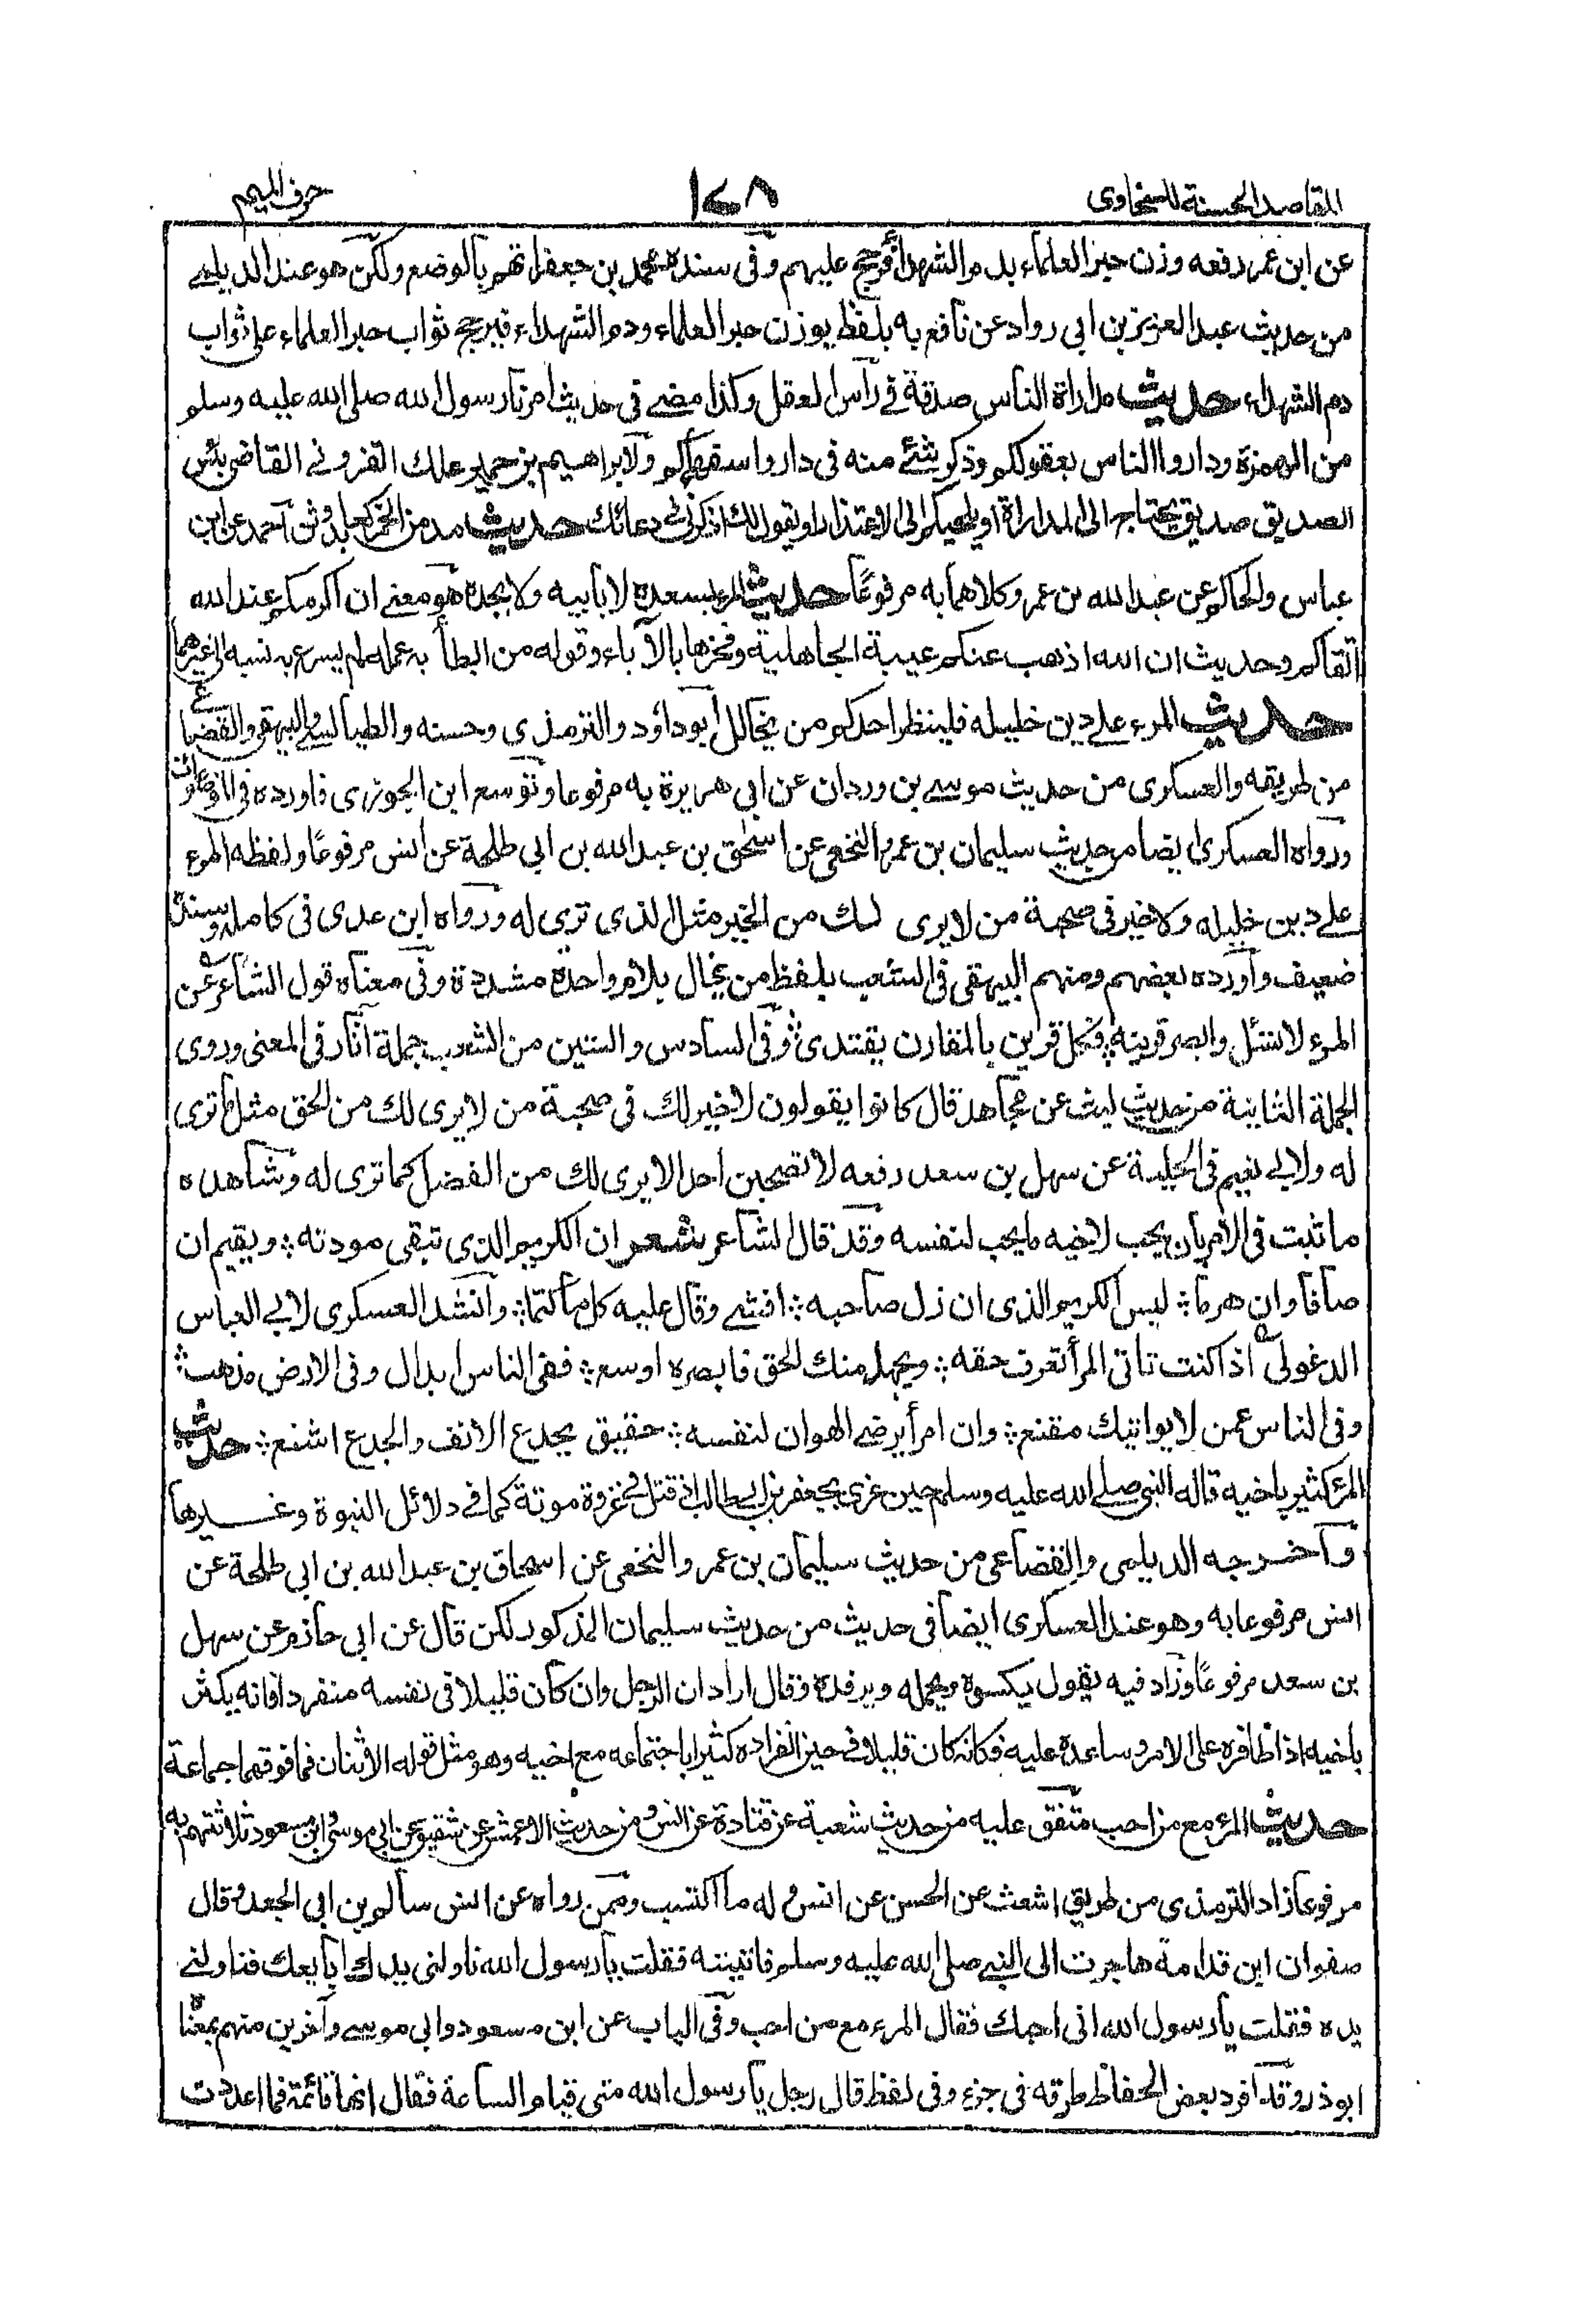 المقاصد الحسنة للسخاوى
١٧٨
حرف الميم
عن ابن عمر رفعه وزن حبر العلماء بدم الشهداء فرجح عليهم وفى سنده محمد بن جعفر اتهم بالوضع ولكن هو عند الديلمي
من حديث عبد العزيز بن ابى رواد عن نافع به بلفظ يوزن حبر العلماء ودم الشهداء فيرجح ثواب حبر العلماء على ثواب
دم الشهداء حديث مداراة الناس صدقة في رأس العقل وكذا مضى في حديث امرنا رسول الله صلى الله عليه وسلم
من الهمزة وداروا الناس بعقولكم وذكر شئ منه فى داروا سفهاءكم ولابراهيم بن حميد علك القزويني القاضى بئس
الصديق صديق يحتاج الى المداراة او يلجيكم الى الاعتذار او يقول لك اذكرني في دعائك حديث مدمن الخمر كعابد وثن احمد عن ابن
عباس والحاكم عن عبد الله بن عمر وكلاهما به مرفوعًا حديث المرء بسعده لا بأبيه ولا بجده هو معنى ان اكرمكم عند الله
اتقاكم وحديث ان الله اذهب عنكم عيبة الجاهلية وفخرها بالآباء وقوله من ابطأ به عمله لم يسرع به نسبه الى غيرهما
حديث المرء على دين خليله فلينظر احدكم من يخالل ابو داؤد والترمذى وحسنه والطيالسي والبيهقى والقضاعي
من طريقه والعسكرى من حديث موسى بن وردان عن ابى هريرة به مرفوعا وتوسع ابن الجوزى فاورده فى الموضوعات
ورواه العسكرى ايضا من حديث سليمان بن عمرو النخعى عن اسحٰق بن عبد الله بن ابى طلحة عن انس مرفوعًا ولفظه المرء
على دين خليله ولا خير فى صحبة من لا يرى لك من الخير مثل الذى ترى له ورواه ابن عدى فى كامله وسنده
ضعيف واورده بعضهم ومنهم البيهقى فى الشعب بلفظ من يخال بلام واحدة مشددة وفى معناه قول الشاعر عن
المرء لا تسئل وابصر قرينه فكل قرين بالمقارن يقتدى وفى السادس والستين من الشعب جملة آثار فى المعنى وروى
الجملة الثانية من حديث ليث عن مجاهد قال كانوا يقولون لا خير لك فى صحبة من لا يرى لك من الحق مثل ما ترى
له ولابي نعيم فى الحلية عن سهل بن سعد رفعه لا تصحبن احدا لا يرى لك من الفضل كما ترى له وشاهده
ما ثبت فى الامر بان يحب لاخيه ما يحب لنفسه وقد قال الشاعر شعر ان الكريم الذى تبقى مودته ؛ ويقيم ان
صافا وان هرما ؛ ليس الكريم الذى ان زل صاحبه ؛ افشى وقال عليه كل ما كتما ؛ وانشد العسكرى لابي العباس
الدغولى اذا كنت تأتى المرأ تعرف حقه ؛ ويجهل منك الحق فابصره اوسع ؛ ففى الناس ابدال وفى الارض مذهب ؛
وفى الناس عمن لا يواتيك مقنع ؛ وان امرأ يرضى الهوان لنفسه ؛ حقيق بجدع الانف والجدع اشنع ؛ حديث
المرء كثير باخيه قاله النبى صلى الله عليه وسلم حين عزى بجعفر بن ابي طالب اذ قتل في غزوة موتة كما في دلائل النبوة وغيرها
واخرجه الديلمى والقضاعى من حديث سليمان بن عمرو النخعى عن اسحاق بن عبد الله بن ابى طلحة عن
انس مرفوعا به وهو عند العسكرى ايضا فى حديث من حديث سليمان المذكور لكن قال عن ابى حازم عن سهل
بن سعد مرفوعًا وزاد فيه يقول يكسوه ويحمله ويرفده وقال اراد ان الرجل وان كان قليلا فى نفسه منفردا فانه يكثر
باخيه اذا ظافره على الامر وساعده عليه فكانه كان قليلا في حين انفراده كثيرا باجتماعه مع اخيه وهو مثل قوله الاثنان فما فوقهما جماعة
حديث المرء مع من احب متفق عليه من حديث شعبة عن قتادة عن انس ومن حديث الاعمش عن شقيق عن ابى موسى وابن مسعود ثلاثتهم به
مرفوعا زاد الترمذى من طريق اشعث عن الحسن عن انس وله ما اكتسب وممن رواه عن انس سالم بن ابى الجعد وقال
صفوان ابن قدامة هاجرت الى النبي صلى الله عليه وسلم فاتيته فقلت يا رسول الله ناولنى يدك ابايعك فناولني
يده فقلت يا رسول الله انى احبك فقال المرء مع من احب وفى الباب عن ابن مسعود وابى موسى وآخرين منهم بمعناه
ابو ذر وقد افرد بعض الحفاظ طرقه فى جزء وفى لفظ قال رجل يا رسول الله متى قيام الساعة فقال انها قائمة فما اعددت